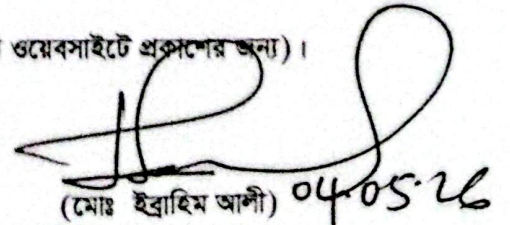 ওয়েবসাইটে প্রকাশের জন্য)।
(মোঃ ইব্রাহিম আলী) 04.05.26